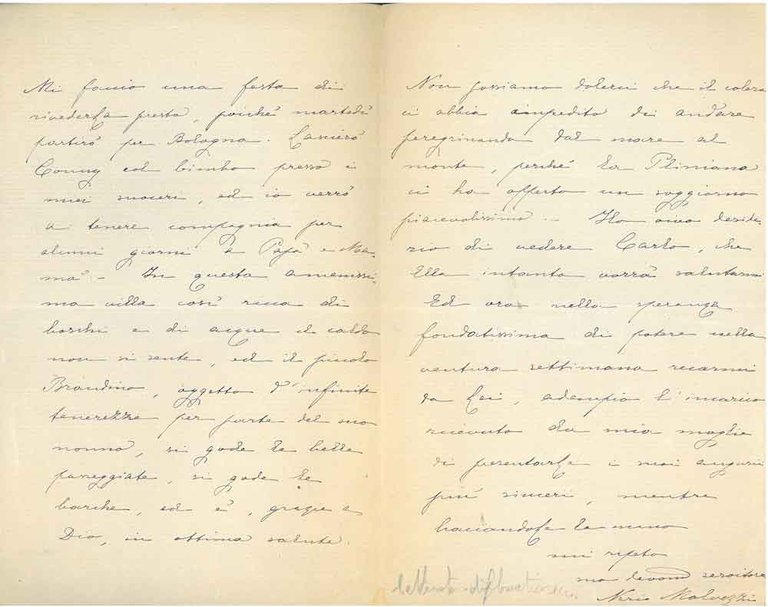 Mi faccio una festa di
rivederla presto, poiché martedì
partirò per Bologna. Lascierò
ed bimbo presso i
miei suoceri, ed io verrò
a tenere compagnia per
alcuni giorni a Papà e Mam-
mà - In questa amenissi-
ma villa così ricca di
boschi e di acque il caldo
non si sente, ed il piccolo
Brandino, oggetto d'infinite
tenerezze per parte del suo
nonno, si gode le belle
passeggiate, si gode le
barche, ed è, grazie a
Dio, in ottima salute.
Non possiamo dolerci che il colera
ci abbia impedito di andare
peregrinando dal mare al
monte, perché la Pliniana
ci ha offerto un soggiorno
piacevolissimo - Ho vivo deside-
rio di vedere Carlo, che
Ella intanto vorrà salutarmi
Ed ora nella speranza
fondatissima di potere nella
ventura settimana recarmi
da Lei, adempio l'incarico
ricevuto da mia moglie
di presentarle i suoi auguri
più sinceri, mentre
baciandole la mano
mi ripeto
suo servitore
Nerio Malvezzi